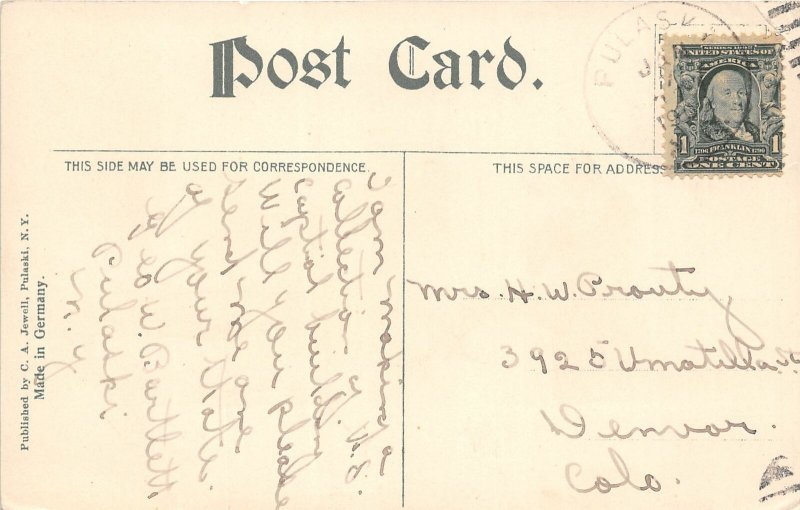 Post Card.
THIS SIDE MAY BE USED FOR CORRESPONDENCE.
THIS SPACE FOR ADDRESS
Published by C. A. Jewell, Pulaski, N. Y.
Made in Germany.
I am making a
collection of U.S.
captial building
Will you please
send me one
of your State.
Geo W. Bartlett
Pulaski
N.Y
Mrs. H. W. Prouty
3925 Umatilla St
Denvor.
Colo.
PULASK
SERIES 1902
UNITED STATES OF
AMERICA
1 FRANKLIN 1
POSTAGE
ONE CENT